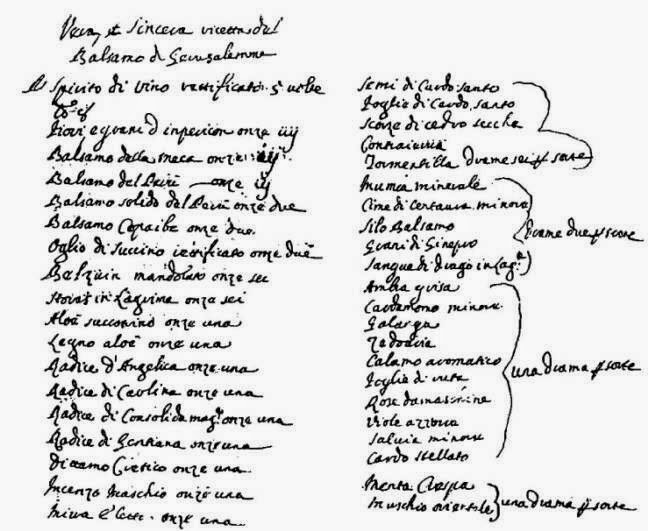 Vera, et sincera ricetta del
Balsamo di Gerusalemme
Spirito di vino rettificato 5 volte
Fiori e grani d'inpericon onze iiij
Balsamo della meca onze iiij
Balsamo del Perù onze iij
Balsamo solido del Perù onze due
Balsamo Copaibe onze due
Oglio di Succino rettificato onze due
Belzuin mandolato onze sei
Storat in Lagrima onze sei
Aloè succotrino onze una
Legno aloè onze una
Radice d'Angelica onze una
Radice di Carolina onze una
Radice di Consolida mag.e onze una
Radice di Gentiana onze una
Ditamo Cretico onze una
Incenzo Maschio onze una
Mirra onze una
Semi di Cardo santo
Foglie di Cardo santo
Scorze di cedro secche
Contraierva
Tormentilla Drame sei p sorte
Mumia minerale
Cime di Centaura minore
Silo Balsamo
Grani di Ginepro
Sangue di drago in Lag.a
Drame due p sorte
Ambra grisa
Cardamomo minore
Galanga
Zedoaria
Calamo aromatico
Foglie di ruta
Rose damaschine
Viole azzure
Salvia minore
Cardo stellato
una drama p sorte
Menta Crespa
Muschio orientale
una drama p sorte